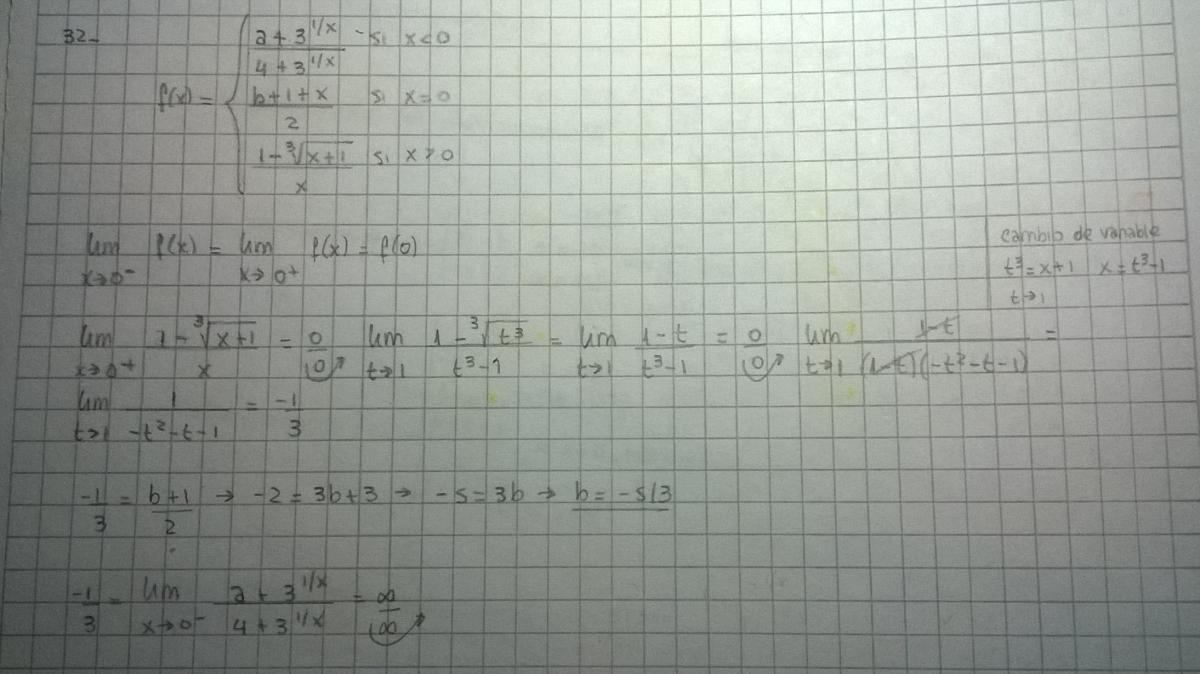 32-
a + 3^(1/x) / 4 + 3^(1/x) - si x < 0
f(x) = { b + 1 + x / 2 si x = 0
1 - ∛(x+1) / x si x > 0
lim x→0⁻ f(x) = lim x→0⁺ f(x) = f(0)
cambio de variable
t³ = x+1 x = t³-1
t→1
lim x→0⁺ (1 - ∛(x+1)) / x = 0/0 lim t→1 (1 - ∛(t³)) / (t³-1) = lim t→1 (1-t) / (t³-1) = 0/0 lim t→1 (1-t) / (1-t)(-t²-t-1) =
lim t→1 1 / (-t²-t-1) = -1/3
-1/3 = (b+1)/2 → -2 = 3b+3 → -5 = 3b → b = -5/3
-1/3 = lim x→0⁻ (a + 3^(1/x)) / (4 + 3^(1/x)) = ∞/∞